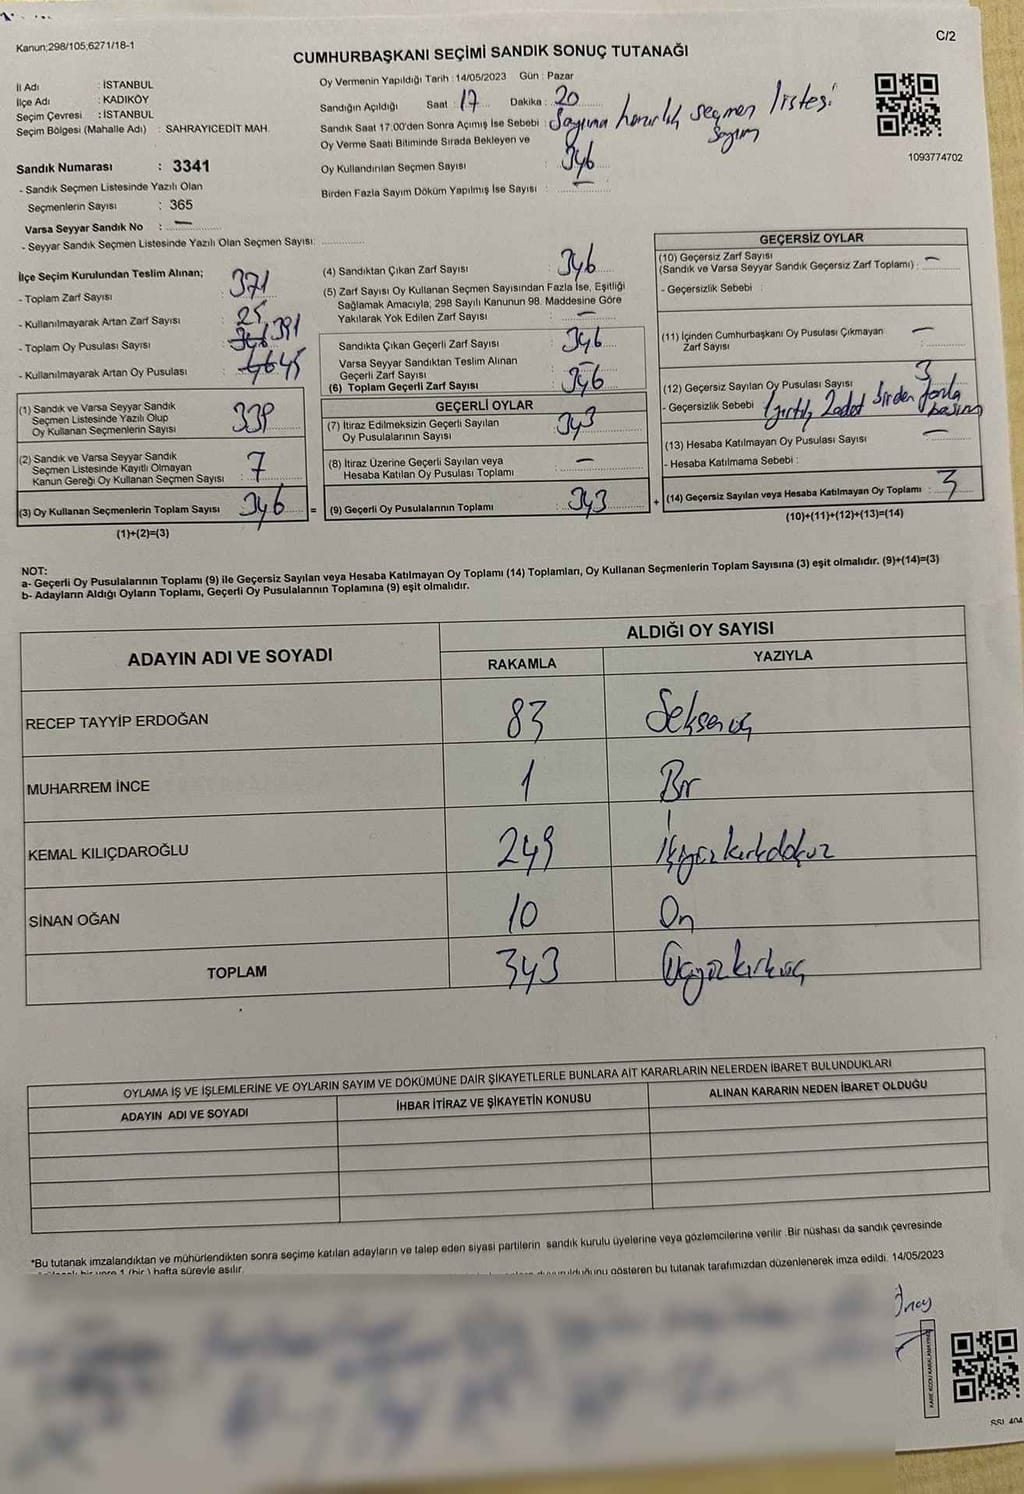 Kanun;298/105,6271/18-1
C/2
CUMHURBAŞKANI SEÇİMİ SANDIK SONUÇ TUTANAĞI
İl Adı : İSTANBUL
İlçe Adı : KADIKÖY
Seçim Çevresi : İSTANBUL
Seçim Bölgesi (Mahalle Adı) : SAHRAYICEDİT MAH.
Sandık Numarası : 3341
- Sandık Seçmen Listesinde Yazılı Olan
Seçmenlerin Sayısı : 365
Varsa Seyyar Sandık No : —
- Seyyar Sandık Seçmen Listesinde Yazılı Olan Seçmen Sayısı:
Oy Vermenin Yapıldığı Tarih : 14/05/2023 Gün : Pazar
Sandığın Açıldığı Saat : 17 Dakika : 20
Sandık Saat 17:00'den Sonra Açımış İse Sebebi : Sayıma hazırlık seçmen listesi
Sayım
Oy Verme Saati Bitiminde Sırada Bekleyen ve
Oy Kullandırılan Seçmen Sayısı : 346
Birden Fazla Sayım Döküm Yapılmış İse Sayısı : —
1093774702
İlçe Seçim Kurulundan Teslim Alınan;
- Toplam Zarf Sayısı : 371
- Kullanılmayarak Artan Zarf Sayısı : 25
- Toplam Oy Pusulası Sayısı : 391
- Kullanılmayarak Artan Oy Pusulası : 45
(1) Sandık ve Varsa Seyyar Sandık
Seçmen Listesinde Yazılı Olup
Oy Kullanan Seçmenlerin Sayısı : 339
(2) Sandık ve Varsa Seyyar Sandık
Seçmen Listesinde Kayıtlı Olmayan
Kanun Gereği Oy Kullanan Seçmen Sayısı : 7
(3) Oy Kullanan Seçmenlerin Toplam Sayısı : 346 =
(1)+(2)=(3)
(4) Sandıktan Çıkan Zarf Sayısı : 346
(5) Zarf Sayısı Oy Kullanan Seçmen Sayısından Fazla İse, Eşitliği
Sağlamak Amacıyla; 298 Sayılı Kanunun 98. Maddesine Göre
Yakılarak Yok Edilen Zarf Sayısı : —
Sandıkta Çıkan Geçerli Zarf Sayısı : 346
Varsa Seyyar Sandıktan Teslim Alınan
Geçerli Zarf Sayısı : —
(6) Toplam Geçerli Zarf Sayısı : 346
GEÇERLİ OYLAR
(7) İtiraz Edilmeksizin Geçerli Sayılan
Oy Pusulalarının Sayısı : 343
(8) İtiraz Üzerine Geçerli Sayılan veya
Hesaba Katılan Oy Pusulası Toplamı : —
(9) Geçerli Oy Pusulalarının Toplamı : 343 +
GEÇERSİZ OYLAR
(10) Geçersiz Zarf Sayısı
(Sandık ve Varsa Seyyar Sandık Geçersiz Zarf Toplamı) : —
- Geçersizlik Sebebi :
(11) İçinden Cumhurbaşkanı Oy Pusulası Çıkmayan
Zarf Sayısı : —
(12) Geçersiz Sayılan Oy Pusulası Sayısı : 3
- Geçersizlik Sebebi : 1 yırtık, 2 adet birden fazla
basım
(13) Hesaba Katılmayan Oy Pusulası Sayısı : —
- Hesaba Katılmama Sebebi :
(14) Geçersiz Sayılan veya Hesaba Katılmayan Oy Toplamı : 3
(10)+(11)+(12)+(13)=(14)
NOT:
a- Geçerli Oy Pusulalarının Toplamı (9) ile Geçersiz Sayılan veya Hesaba Katılmayan Oy Toplamı (14) Toplamları, Oy Kullanan Seçmenlerin Toplam Sayısına (3) eşit olmalıdır. (9)+(14)=(3)
b- Adayların Aldığı Oyların Toplamı, Geçerli Oy Pusulalarının Toplamına (9) eşit olmalıdır.
ADAYIN ADI VE SOYADI
ALDIĞI OY SAYISI
RAKAMLA YAZIYLA
RECEP TAYYİP ERDOĞAN 83 Seksenüç
MUHARREM İNCE 1 Bir
KEMAL KILIÇDAROĞLU 249 İkiyüzkırkdokuz
SİNAN OĞAN 10 On
TOPLAM 343 Üçyüzkırküç
OYLAMA İŞ VE İŞLEMLERİNE VE OYLARIN SAYIM VE DÖKÜMÜNE DAİR ŞİKAYETLERLE BUNLARA AİT KARARLARIN NELERDEN İBARET BULUNDUKLARI
ADAYIN ADI VE SOYADI İHBAR İTİRAZ VE ŞİKAYETİN KONUSU ALINAN KARARIN NEDEN İBARET OLDUĞU
*Bu tutanak imzalandıktan ve mühürlendikten sonra seçime katılan adayların ve talep eden siyasi partilerin sandık kurulu üyelerine veya gözlemcilerine verilir. Bir nüshası da sandık çevresinde
1 (bir) hafta süreyle asılır.
gösteren bu tutanak tarafımızdan düzenlenerek imza edildi. 14/05/2023